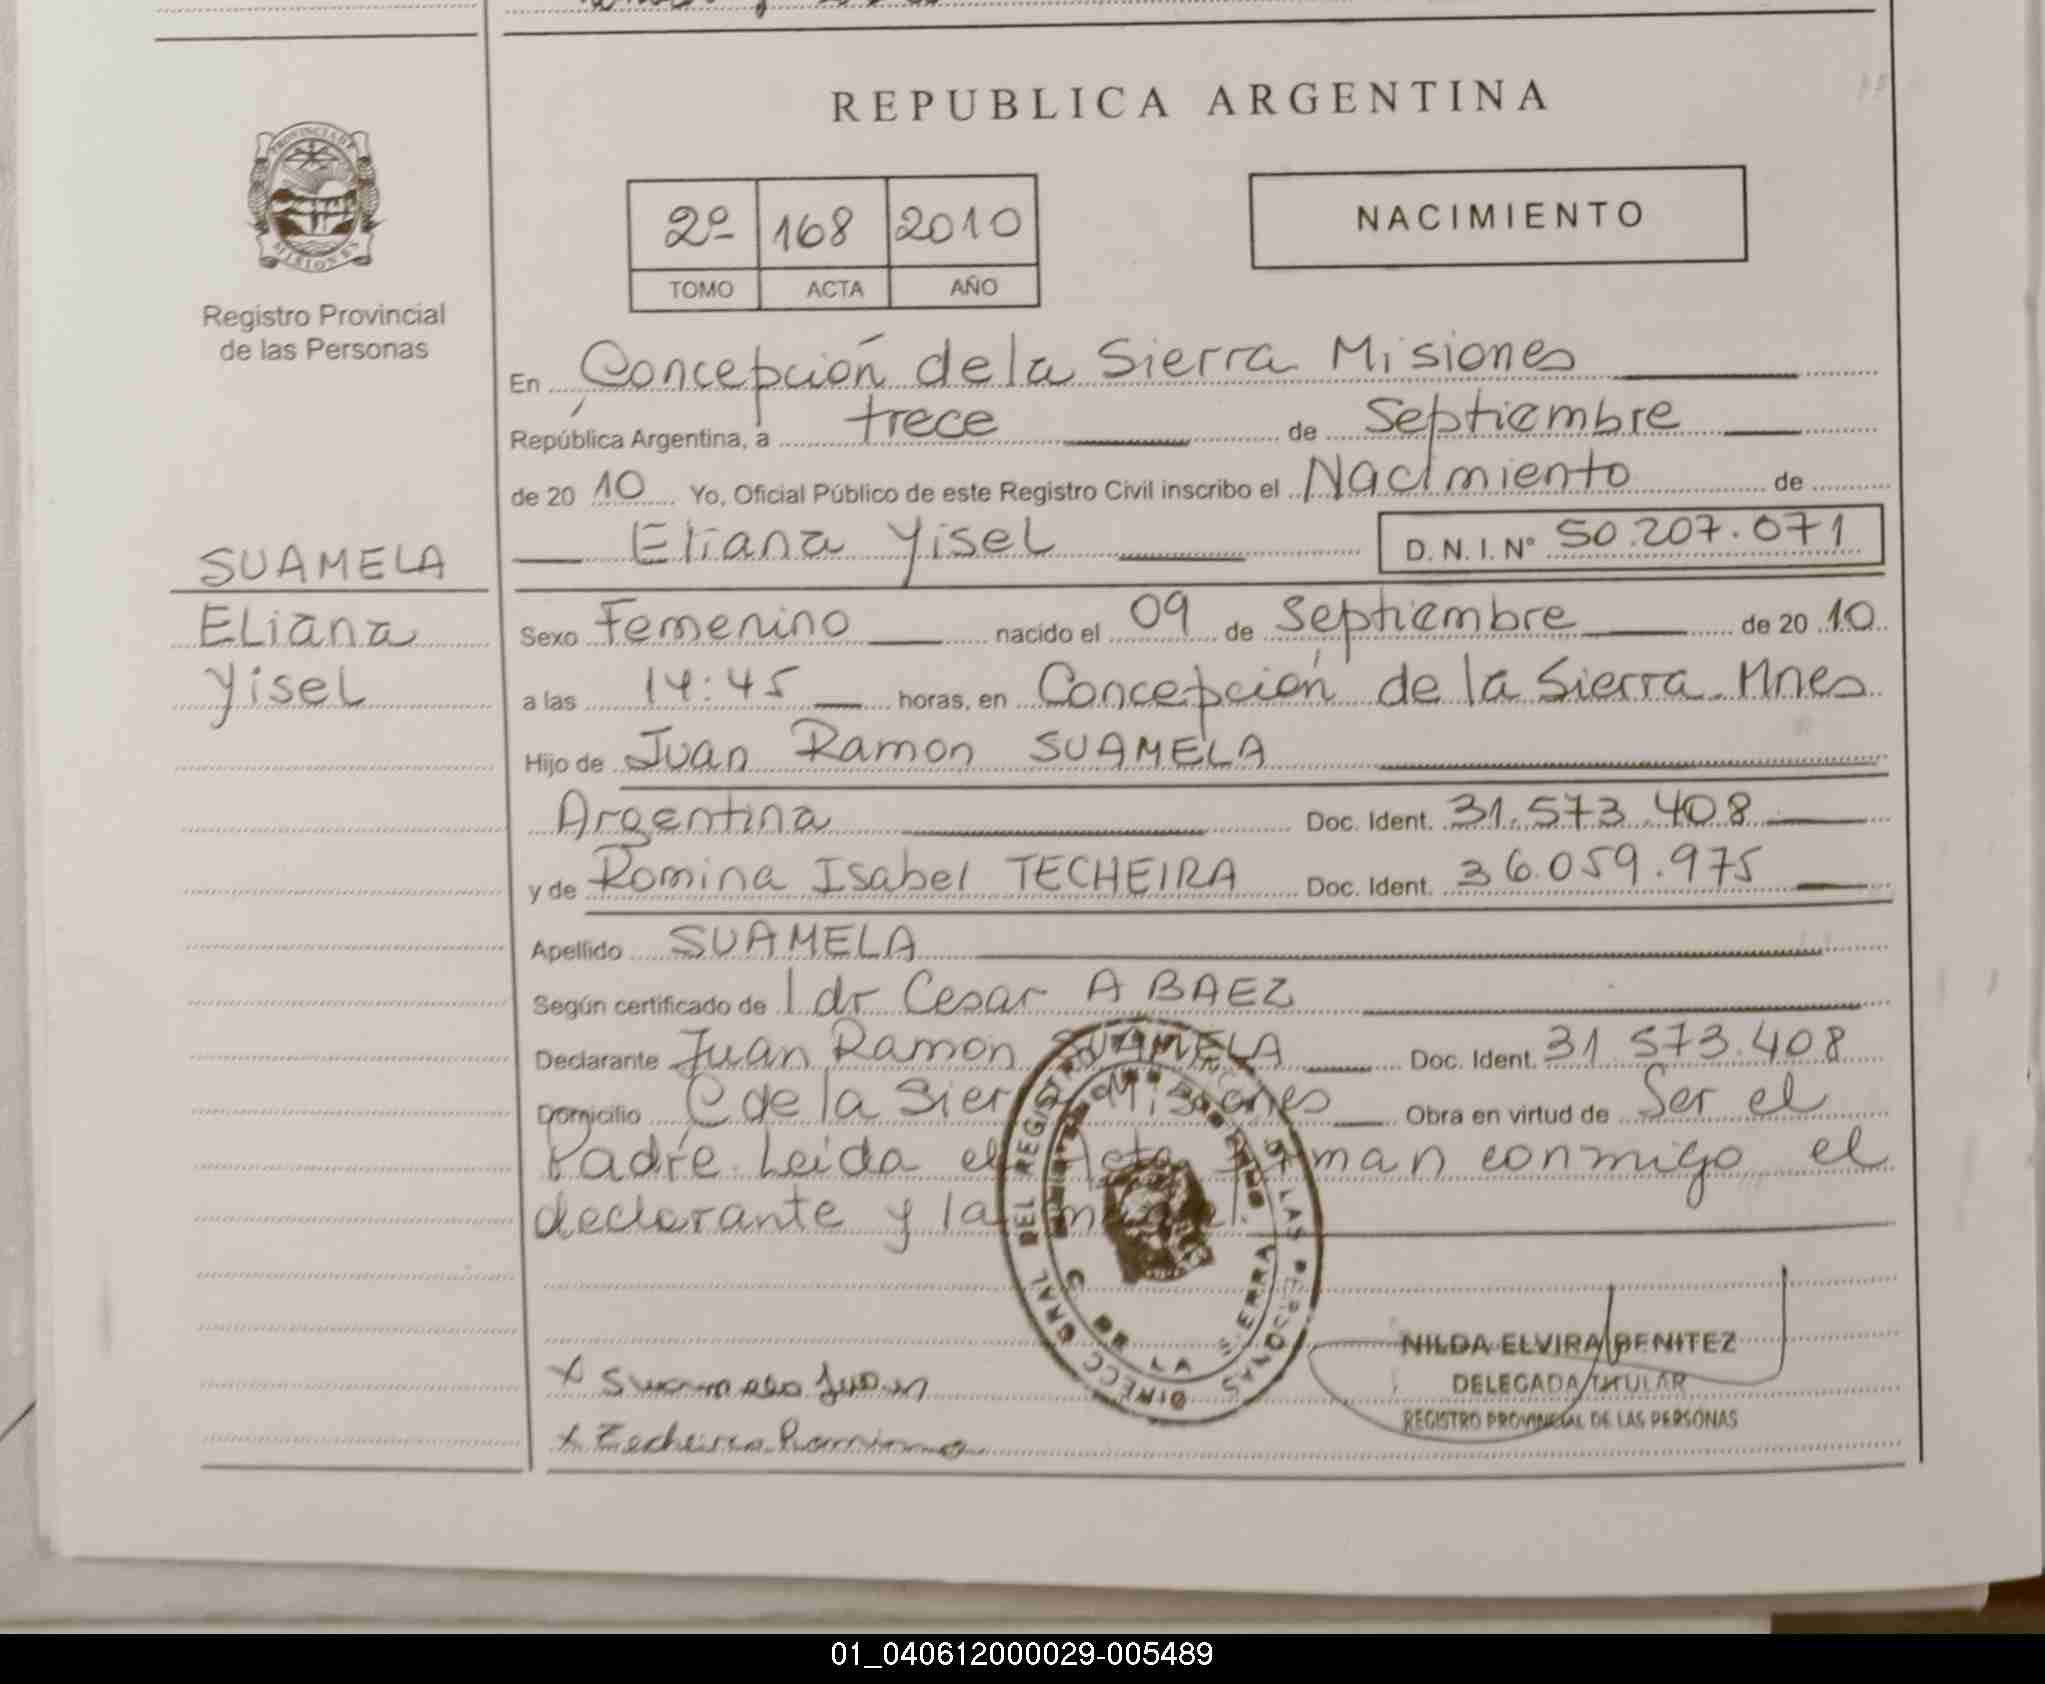 REPUBLICA ARGENTINA
PROVINCIA DE
MISIONES
Registro Provincial
de las Personas
2º 168 2010
TOMO ACTA AÑO
NACIMIENTO
En Concepción de la Sierra Misiones
República Argentina, a trece de Septiembre
de 20 10 Yo, Oficial Público de este Registro Civil inscribo el Nacimiento de
Eliana Yisel D. N. I. Nº 50.207.071
SUAMELA
ELiana
Yisel
Sexo Femenino nacido el 09 de Septiembre de 20 10
a las 14:45 horas, en Concepción de la Sierra Mnes
Hijo de Juan Ramon SUAMELA
Argentina Doc. Ident. 31.573.408
y de Romina Isabel TECHEIRA Doc. Ident. 36.059.975
Apellido SUAMELA
Según certificado de l dr Cesar A BAEZ
Declarante Juan Ramon SUAMELA Doc. Ident. 31 573.408
Domicilio C de la Sierra Misiones Obra en virtud de Ser el
Padre. Leida el Acta firman conmigo el
declarante y la
DIRECC GRAL DEL REGISTRO DE LAS PERSONAS
LA SIERRA
X Suamela Juan
X Techeira Romina
NILDA ELVIRA BENITEZ
DELEGADA TITULAR
REGISTRO PROVINCIAL DE LAS PERSONAS
01_040612000029-005489